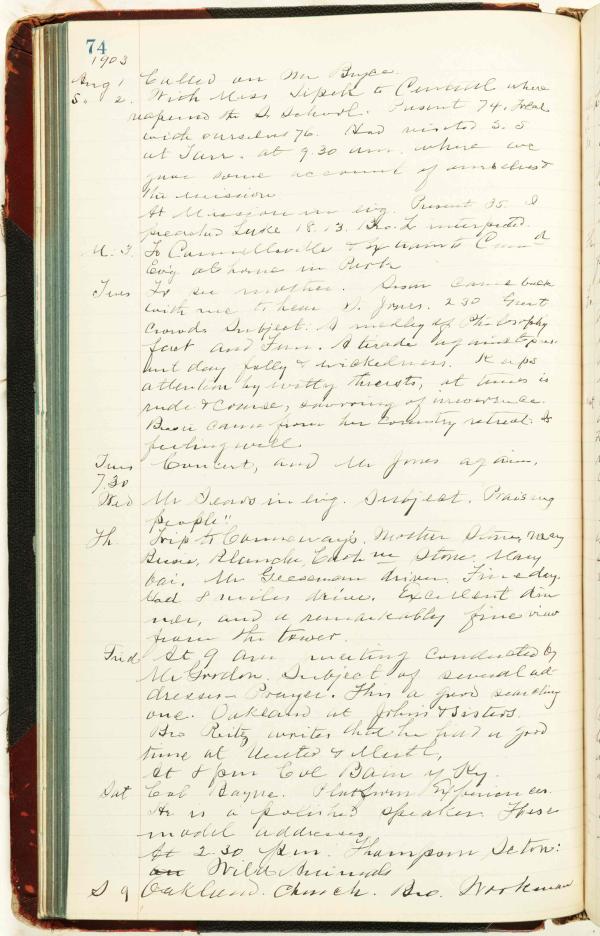 74
1903
Aug 1 Called on Mr Bryce.
S. 2. With Miss to where
reopened the S. School. Present 74. Total
with ourselves 76. Had visited S. S
at Tarr. at 9.30 am. where we
gave some account of ourselves &
the mission
At Mission in evg. Present 35. I
preached Luke 18.13. Bro. L interpreted.
M. 3. To Connellsville &
Ev'g at home in Park
Tues To see mother. Susan came back
with me to hear S. Jones. 2.30 Great
crowds Subject: A medley of Philosophy
fact and Fun. A tirade against pres-
ent day folly & wickedness. Keeps
attention by witty thrusts, at times is
rude & coarse, savoring of irreverence.
Bessie came from her country retreat. Is
feeling well.
Tues Concert, and Mr Jones again.
7.30
Wed Mr in evg. Subject. Praising
people"
Th. Trip to Conneway's. Mother Stone, Mary
Bessie, Blanche, Stone, Mary
Mr. Geeseman driver. Fine day.
Had 8 miles drive. Excellent din-
ner, and a remarkably fine view
from the tower.
Frid At 9 am meeting conducted by
Mr Gordon. Subject of several ad
dresses - Prayer. This a good searching
one. Oakland at John's & Sisters.
Bro Reitz writes that he had a good
time at &
At 8 pm Col Bain of Ky.
Sat Col Bayne. Platform Experiences
He is a polished speaker. These
model addresses
At 2.30 pm. Thompson Seton:
on Wild Animals
S 9 Oakland. Church. Bro. Workman